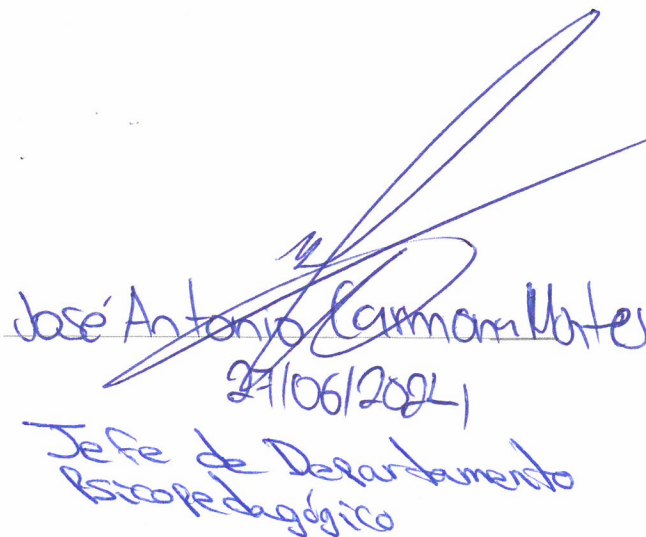 José Antonio Carmona Montes
27/06/2024
Jefe de Departamento
Psicopedagógico